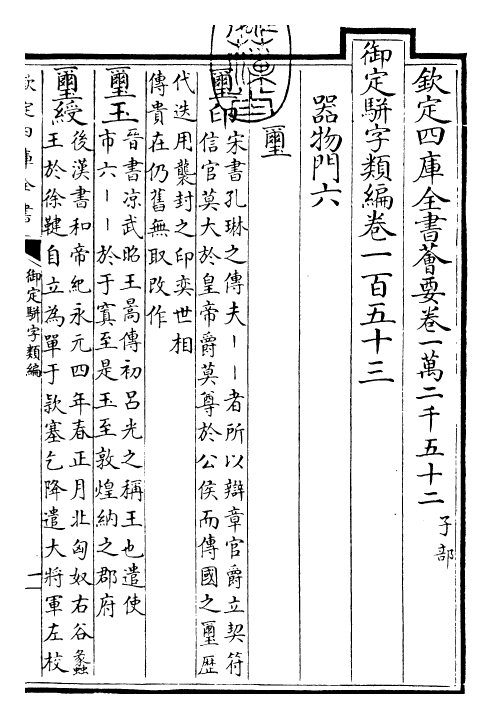 欽定四庫全書薈要卷一萬二千五十二 子部
御定駢字類編卷一百五十三
器物門六
璽
璽印 宋書孔琳之傳夫丨丨者所以辯章官爵立契符
信官莫大於皇帝爵莫尊於公侯而傳國之璽歷
代迭用襲封之印奕世相
傳貴在仍舊無取改作
璽玉 晉書凉武昭王暠傳初呂光之稱王也遣使
市六丨丨於于窴至是玉至敦煌納之郡府
璽綬 後漢書和帝紀永元四年春正月北匈奴右谷蠡
王於徐鞬自立為單于款塞乞降遣大將軍左校
欽定四庫全書
御定駢字類編
一